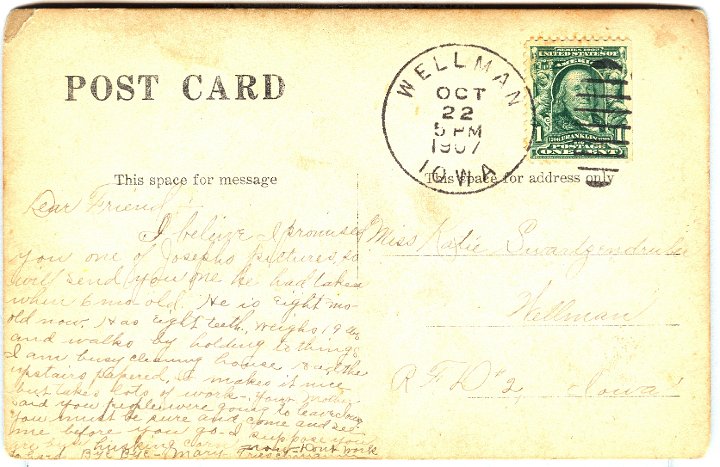 POST CARD
WELLMAN
OCT
22
5 PM
1907
IOWA
SERIES 1902
UNITED STATES OF
AMERICA
1 FRANKLIN 1
POSTAGE
ONE CENT
This space for message
This space for address only
Dear Friend
I belive I promised
you one of Josephs pictures, so
will send you one he had taken
when 6 mo old. He is eight mo
old now. Has eight teeth. weighs 19 lbs
and walks by holding to things
I am busy cleaning house had the
upstairs papered, it makes it nice
but takes lots of work. Your mother
said you people were going to leave
You must be sure and come and see
me before you go. I suppose you
husking corn now Dont work
to hard Bye Bye - Mary
Miss Katie Swartzendruber
Wellman
R F D #2, Iowa